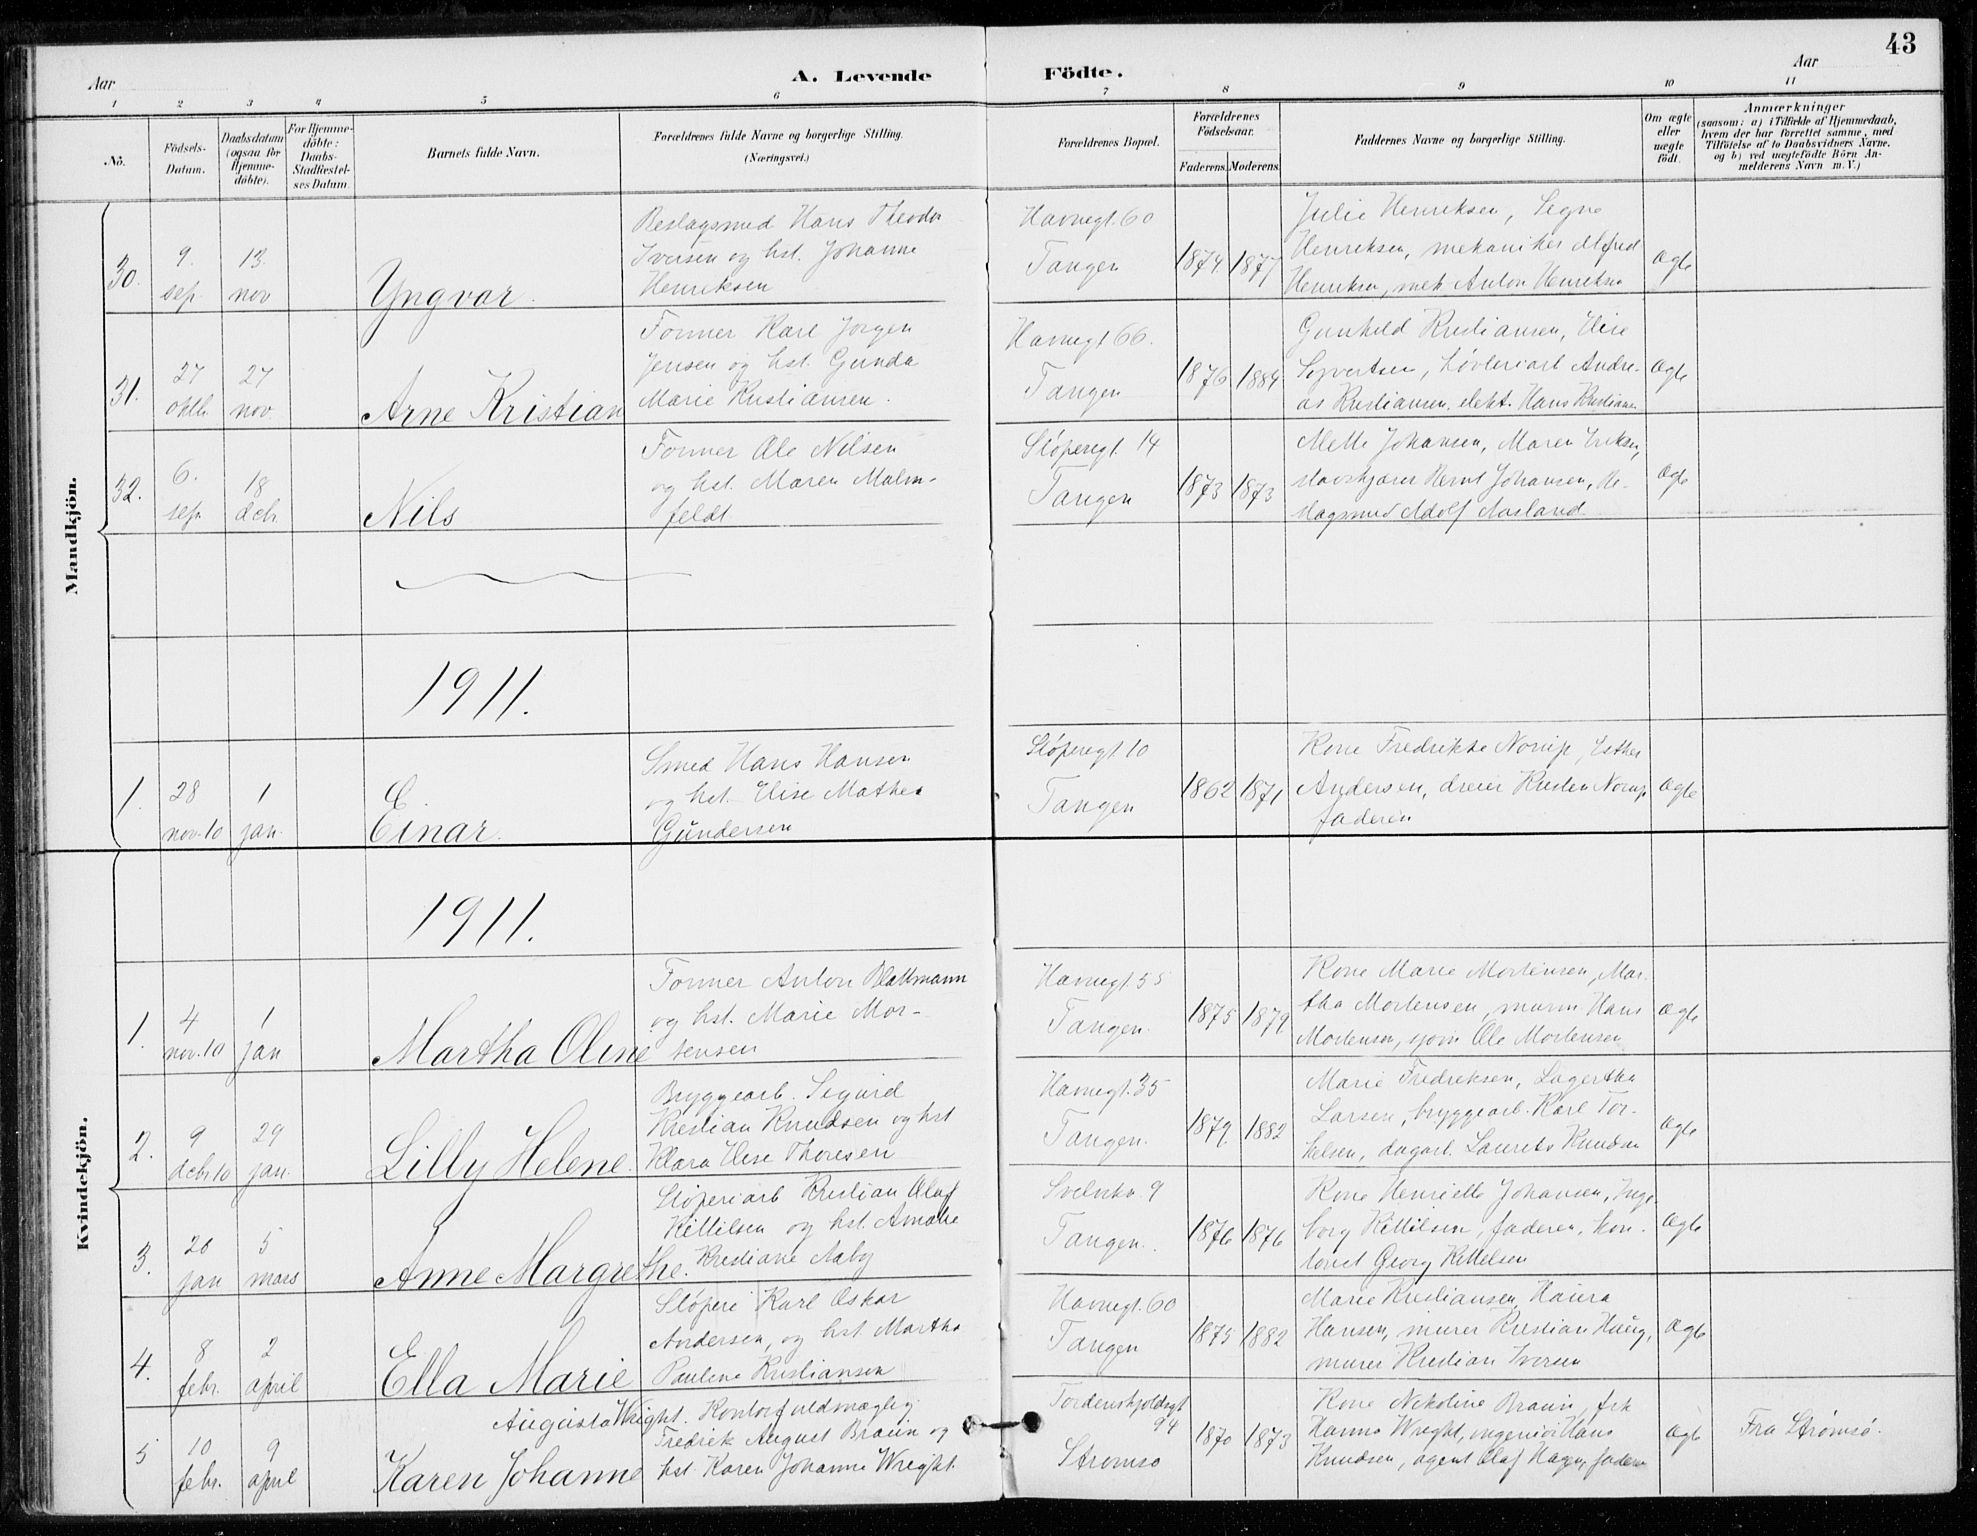 43
Aar
A. Levende Födte.
Aar
1 2 3 4 5 6 7 8 9 10 11
No.
Födsels-Datum.
Daabsdatum (ogsaa för Hjemmedöbte).
For Hjemmedöbte: Daabs-Stadfæstelses Datum.
Barnets fulde Navn.
Forældrenes fulde Navne og borgerlige Stilling.
(Næringsvei.)
Forældrenes Bopæl.
Forældrenes Födselsaar.
Faderens. Moderens.
Faddernes Navne og borgerlige Stilling.
Om ægte eller uægte födt.
Anmærkninger
(saasom: a) i Tilfælde af Hjemmedaab,
hvem der har forrettet samme, med
Tilföielse af to Daabsvidners Navne.
og b) ved uægtefödte Börn An-
melderens Navn m. V.)
Mandkjön.
30. 9. sep. 13. nov Yngvar.
Beslagsmed Hans Theodor
Iversen og hst. Johanne
Henriksen
Havnegt. 60
Tangen
1874 1877
Julie Henriksen, Signe
Henriksen, mekaniker Alfred
Henriksen, mek Anton Henriksen
Ægte
31. 27 oktb. 27 nov. Arne Kristian
Former Karl Jørgen
Jensen og hst. Gunda
Marie Kristiansen.
Havnegt 66.
Tangen
1876 1884
Gunhild Kristiansen, Elise
Syvertsen, høvleriarb Andre-
as Kristiansen, elekt. Hans Kristiansen
Ægte
32. 6. sep. 18 dcbr Nils
Former Ole Nilsen
og hst. Maren Malm-
feldt
Støperegt. 14
Tangen
1873 1873
Mette Johansen, Maren Eriksen,
stavskjærer Bernt Johansen, Be-
slagsmed Adolf Aasland
Ægte
1911.
1. 28 nov. 10 1 jan. Einar.
Smed Hans Hansen
og hst. Elise Mathea
Gundersen
Støperegt. 10
Tangen
1862 1871
Kone Fredrikke Norup, Esther
Andersen, dreier Kristen Norup
faderen
Ægte
Kvindekjön.
1911.
1. 4 nov. 10 1 jan Martha Oline
Former Anton Blattmann
og hst. Marie Mor-
tensen
Havnegt. 55
Tangen.
1875 1879
Kone Marie Mortensen, Mar-
tha Mortensen, murm Hans
Mortensen, sjøm Ole Mortensen
Ægte
2. 9 dcbr 10 29 jan. Lilly Helene.
Bryggearb. Sigurd
Kristian Knudsen og hst
Klara Elise Thoresen
Havnegt. 35
Tangen.
1879 1882
Marie Fredriksen, Lagertha
Larsen, bryggearb. Karl Tor-
kelsen, dagarb. Laurits Knudsen
Ægte
3. 26 jan 5 mars Anne Margrethe.
Støperiarb Kristian Olaf
Kittilsen og hst. Amalie
Kristiane Aaby
Svelvikv. 9
Tangen.
1876 1876
Kone Henriette Johansen, Inge-
borg Kittilsen, faderen, kon-
torist Georg Kittelsen
Ægte
4. 8 febr. 2 april Ella Marie
Støperi Karl Oskar
Andersen, og hst Martha
Pauline Kristiansen
Havnegt. 60
Tangen
1875 1882
Marie Kristiansen, Haura
Hansen, murer Kristian Haug,
murer Kristian Iversen
Ægte
5 10 febr. 9 april Augusta Wright. Karen Johanne
Kontorfuldmægtig
Fredrik August Braun og
hst. Karen Johanne Wright.
Tordenskjoldsgt
94
Strømsø
1870 1873
Kone Nikoline Braun, frk
Hanna Wright, ingeniør Hans
Knudsen, agent Olaf Hagen, faderen
Ægte
Fra Strømsø.